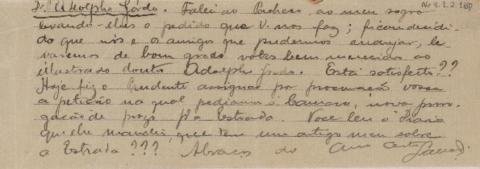 Dr. Adolpho Gordo. Falei ao Pacheco ao meu sogro
levando-elles o pedido que V. nos faz; ficou decidi-
do que nós e os amigos que pudermos arranjar, le-
varemos de bom grado votos bem merecidos ao
illustrado doutor Adolpho Gordo. Está satisfeito??
Hoje fiz o Prudente assignar por procuração vossa
a petição na qual pedimos á Camara, nova proro-
gação de prazo p'a estrada. Voce leu o Diario
que lhe mandei, que tem um artigo meu sobre
a Estrada??? Abraços do